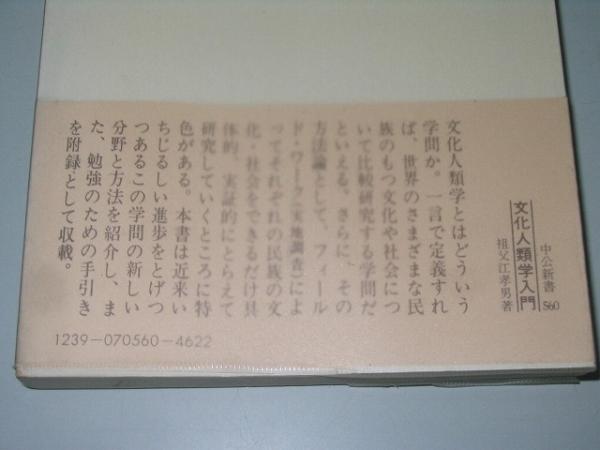 中公新書 560
文化人類学入門
祖父江孝男著
文化人類学とはどういう
学問か。一言で定義すれ
ば、世界のさまざまな民
族のもつ文化や社会につ
いて比較研究する学問だ
といえる。さらに、その
方法論として、フィール
ド・ワーク（実地調査）によ
ってそれぞれの民族の文
化・社会をできるだけ具
体的、実証的にとらえて
研究していくところに特
色がある。本書は近来い
ちじるしい進歩をとげつ
つあるこの学問の新しい
分野と方法を紹介し、ま
た、勉強のための手引き
を附録として収載。
1239-070560-4622